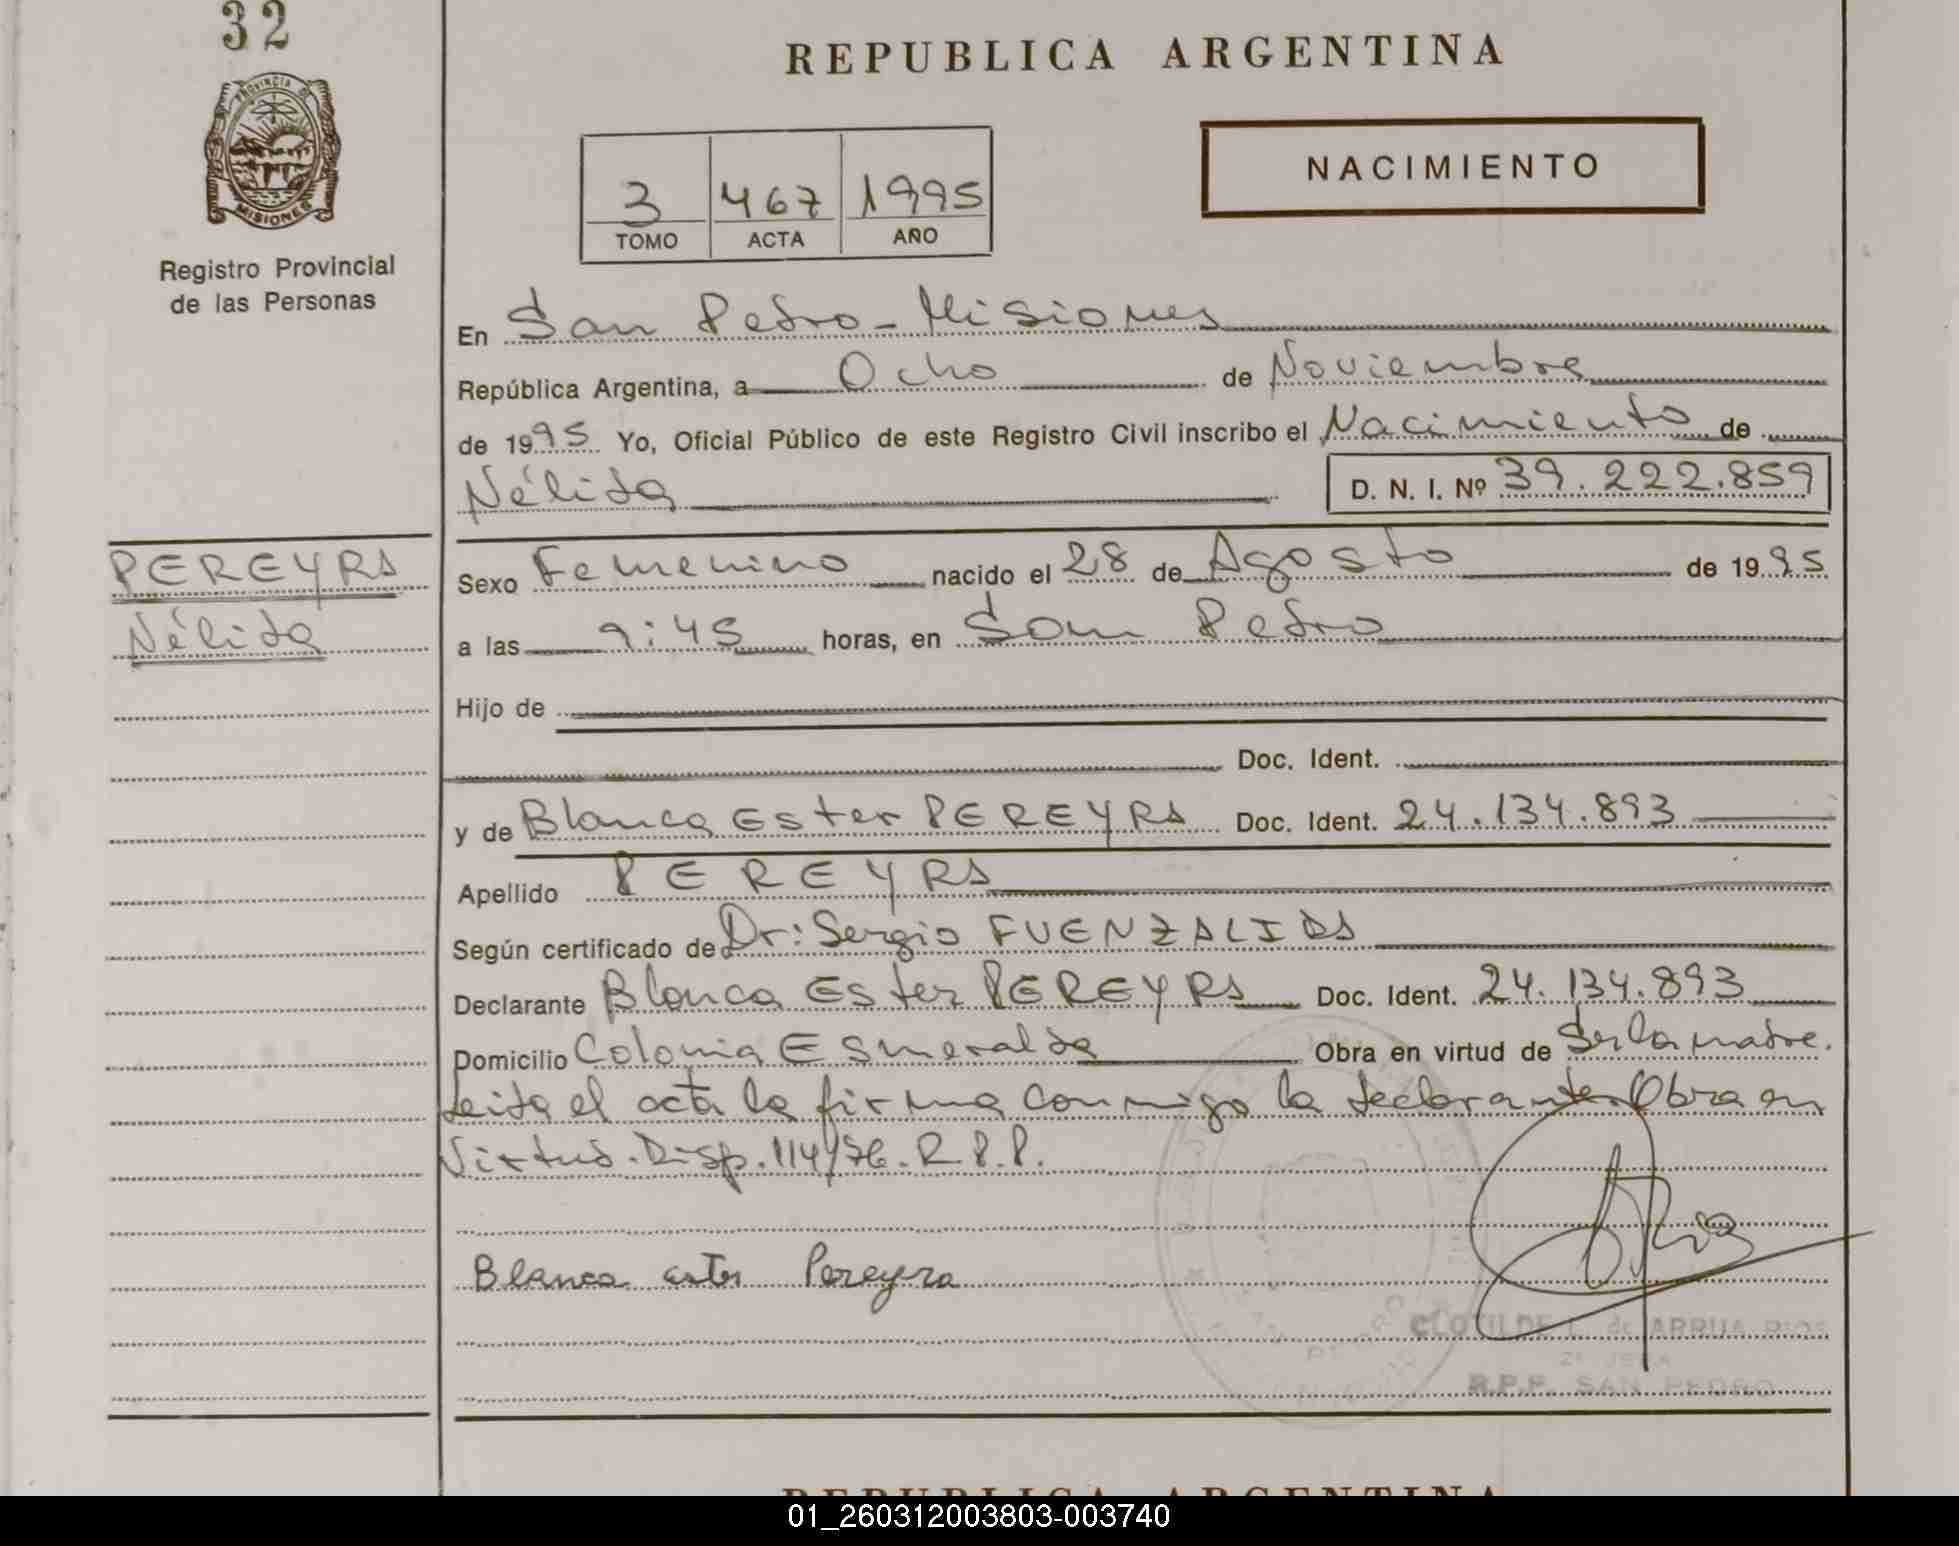 32
PROVINCIA DE
MISIONES
Registro Provincial
de las Personas
REPUBLICA ARGENTINA
NACIMIENTO
3 467 1995
TOMO ACTA AÑO
En San Pedro - Misiones
República Argentina, a Ocho de Noviembre
de 1995 Yo, Oficial Público de este Registro Civil inscribo el Nacimiento de
Nélida D. N. I. Nº 39.222.859
PEREYRA
Nélida
Sexo Femenino nacido el 28 de Agosto de 1995
a las 9:45 horas, en San Pedro
Hijo de
Doc. Ident.
y de Blanca Ester PEREYRA Doc. Ident. 24.134.893
Apellido PEREYRA
Según certificado de Dr: Sergio FUENZALIDA
Declarante Blanca Ester PEREYRA Doc. Ident. 24.134.893
Domicilio Colonia Esmeralda Obra en virtud de Ser la madre.
Leida el acta la firma conmigo la declarante Obra en
Virtud. Disp. 114/76. R.P.P.
Blanca ester Pereyra
CLOTILDE L. de ARRUA RIOS
R.P.P. SAN PEDRO
REPUBLICA ARGENTINA
01_260312003803-003740